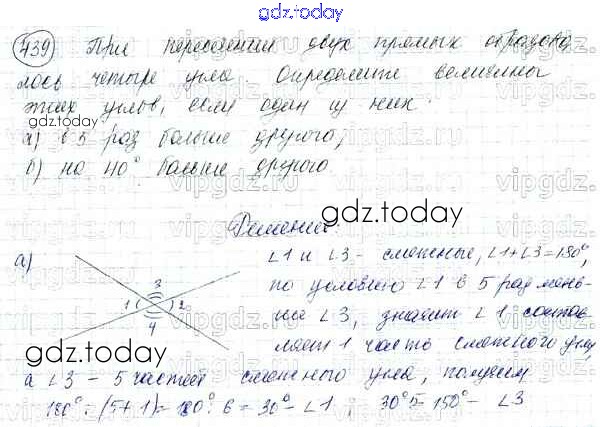 gdz.today
439 При пересечении двух прямых образова
лось четыре угла. Определите величины
этих углов, если один из них:
gdz.today
а) в 5 раз больше другого;
б) на 40° больше другого.
Решение:
gdz.today
а)
∠1 и ∠3 - смежные, ∠1+∠3=180°,
по условию ∠1 в 5 раз мень-
ше ∠3, значит ∠1 состав-
ляет 1 часть смежного угла,
3
1 2
4
gdz.today
а ∠3 - 5 частей смежного угла, получим
180° : (5+1) = 180° : 6 = 30° - ∠1, 30°·5=150° - ∠3
vipgdz.ru